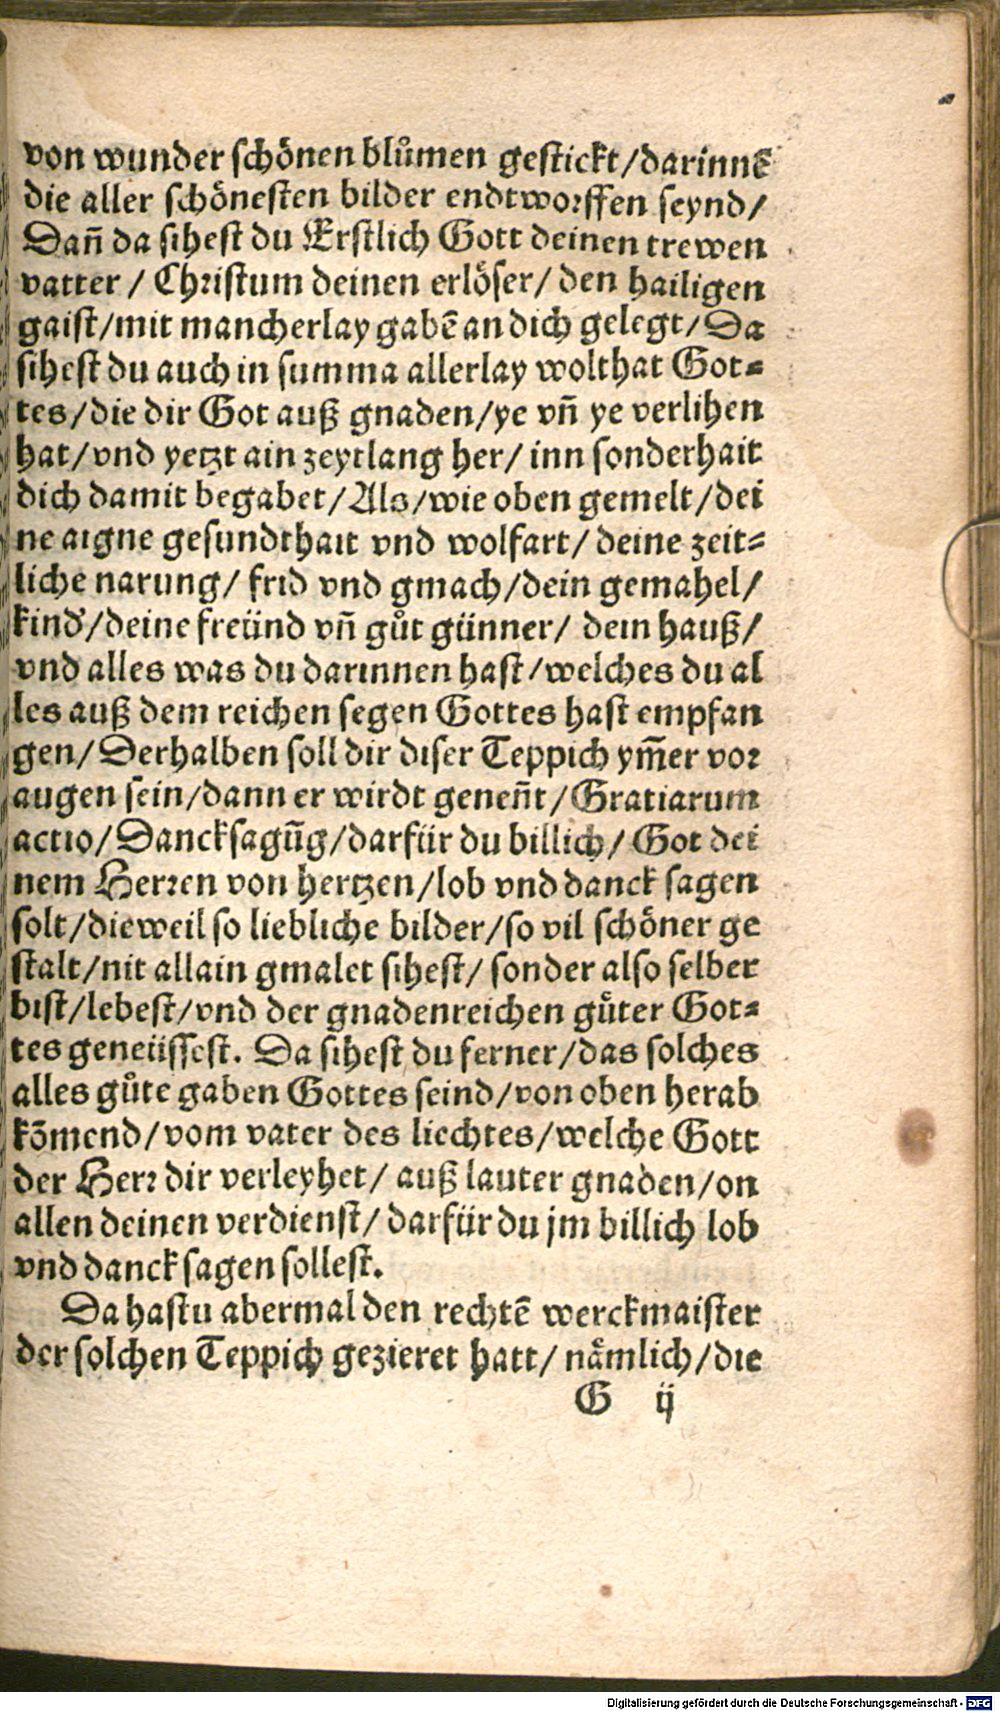 von wunder schönen blůmen gestickt/darinnē
die aller schönesten bilder endtworffen seynd/
Dañ da sihest du Erstlich Gott deinen trewen
vatter / Christum deinen erlöser/ den hailigen
gaist/mit mancherlay gabē an dich gelegt/Da
sihest du auch in summa allerlay wolthat Got⸗
tes/die dir Got auß gnaden/ye vñ ye verlihen
hat/vnd yetzt ain zeytlang her/ inn sonderhait
dich damit begabet/Als/wie oben gemelt/dei
ne aigne gesundthait vnd wolfart/deine zeit⸗
liche narung/ frid vnd gmach/dein gemahel/
kind/deine freünd vñ gůt günner/ dein hauß/
vnd alles was du darinnen hast/welches du al
les auß dem reichen segen Gottes hast empfan
gen/Derhalben soll dir diser Teppich ym̃er vor
augen sein/dann er wirdt geneñt/Gratiarum
actio/Dancksagūg/darfür du billich/ Got dei
nem Herren von hertzen/lob vnd danck sagen
solt/dieweil so liebliche bilder/so vil schöner ge
stalt/nit allain gmalet sihest/ sonder also selber
bist/lebest/vnd der gnadenreichen gůter Got⸗
tes geneüssest. Da sihest du ferner/das solches
alles gůte gaben Gottes seind/von oben herab
kōmend/vom vater des liechtes/welche Gott
der Herr dir verleyhet/ auß lauter gnaden/on
allen deinen verdienst/ darfür du jm billich lob
vnd danck sagen sollest.
Da hastu abermal den rechtē werckmaister
der solchen Teppich gezieret hatt/ nämlich/die
G ij
Digitalisierung gefördert durch die Deutsche Forschungsgemeinschaft - DFG